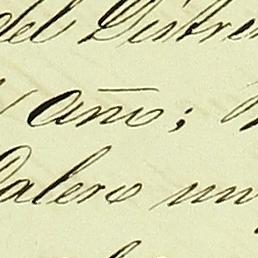 del Distre
año;
alero mu